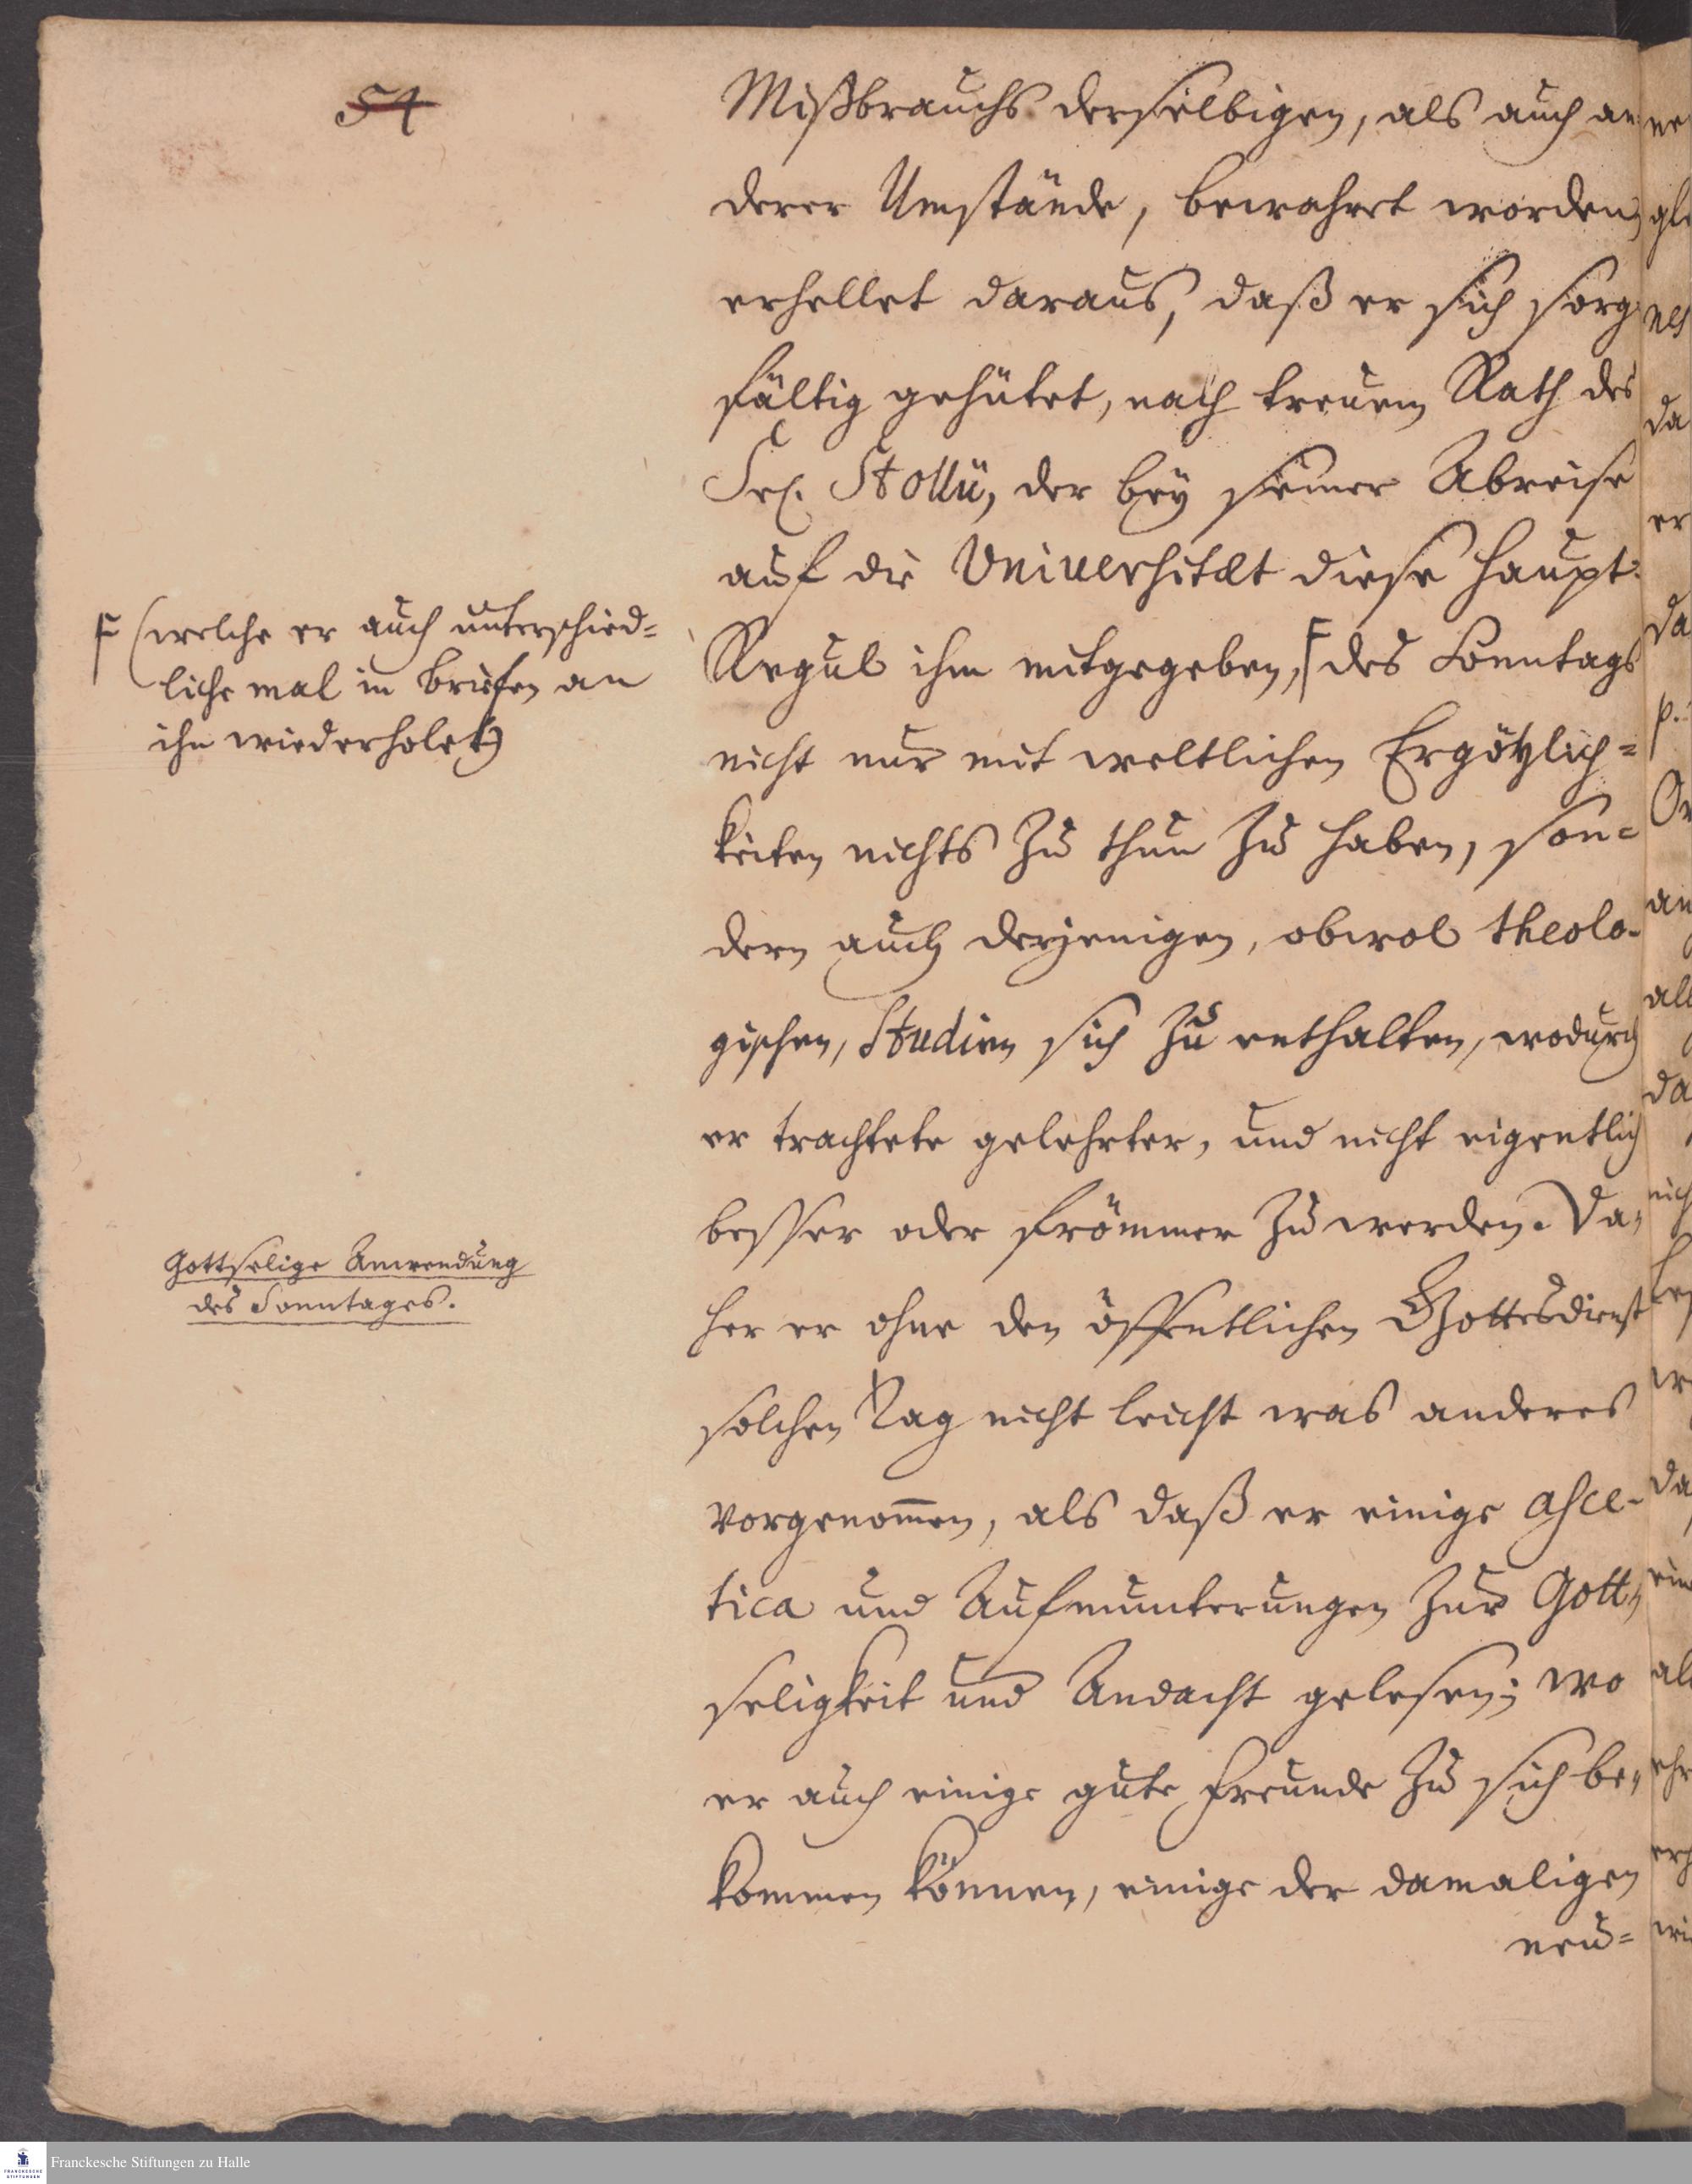 54
Mißbrauchs derselbigen, als auch an-
derer Umstände, bewahret worden,
erhellet daraus, daß er sich sorg-
fältig gehütet, nach treuem Rath des
Sel. Stollii, der bey seiner Abreise
auf die Universitæt diese Haupt-
Regul ihm mitgegeben, des Sonntags
nicht nur mit weltlichen Ergötzlich=
keiten nichts zu thun zu haben, son=
dern auch derjenigen, obwol theolo-
gischen, Studien sich zu enthalten, wodurch
er trachtete gelehrter, und nicht eigentlich
besser oder frömmer zu werden. Da-
her er ohne den öffentlichen Gottesdienst
solchen Tag nicht leicht was anderes
vorgenom̄en, als daß er einige asce-
tica und Aufmunterungen zur Gott-
seligkeit und Andacht gelesen; wo
er auch einige gute Freunde zu sich be-
kommen können, einige der damaligen
neu=
(welche er auch unterschied=
liche mal in Briefen an
ihn wiederholet)
Gottselige Anwendung
des Sonntages.
Franckesche Stiftungen zu Halle
FRANCKESCHE
STIFTUNGEN